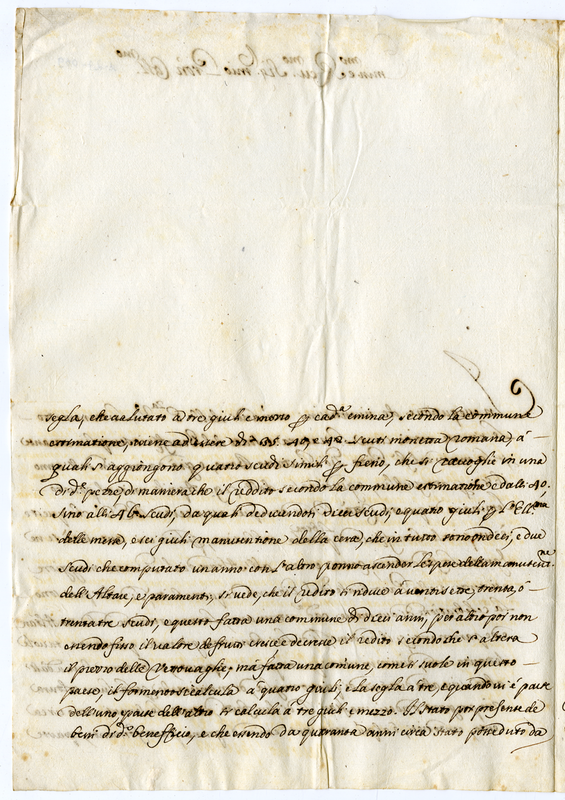 segla, che valutato a tre giuli e mezzo p cad.ª emina, secondo la commune
estimatione, viene ad essere di 35. 40, e 42 scuti moneta romana, á
quali s'aggiongono quatro scudi simili p fieno, che si raccoglie in una
di d.e pezze, di maniera che il reddito secondo la commune estimatione e dalli 40.
sino alli 46 scudi, da quali deducendosi dieci scudi, e quatro giuli p l'
delle messe, e sei giuli manutentione della cera, che in tutto sono ondeci, e due
scudi che computato un anno con l'altro ponno ascender le spese della manutent.ne
dell'Altare, e paramenti, si vede, che il redito si riduce á venti sette, trenta, ó
trenta tre scudi, e questo fatta una commune di dieci anni, per altro poi non
essendo fisso il valore de frutti cresce e decresce il redito secondo che s'altera
il prezzo delle Vettovaglie, má fatta una comune, come si suole in questo
paese, il formento si calcula á quatro giuli, e la segla a tre, e quando vi é parte
dell'uno e parte dell'altro si calcula á tre giuli e mezzo. Il stato poi presente de
beni di d.º beneffizio, e che essendo da quaranta anni circa stato posseduto da